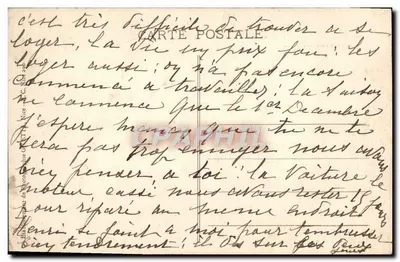 c'est très difficile de trouver a se
CARTE POSTALE
loger, la vie un prix fou; les
loger aussi; on n'a pas encore
commencé a travailler; la saison
ne commence que le 1er Decembre
J'espere que tu ne te
sera pas trop ennuyer nous avons
bien penser a toi: la Voiture
moteur cassé nous avons rester 15 jours
pour réparé au meme endroit
Henri se joint a moi pour t'embrasser
bien tendrement; sur les deux
joues